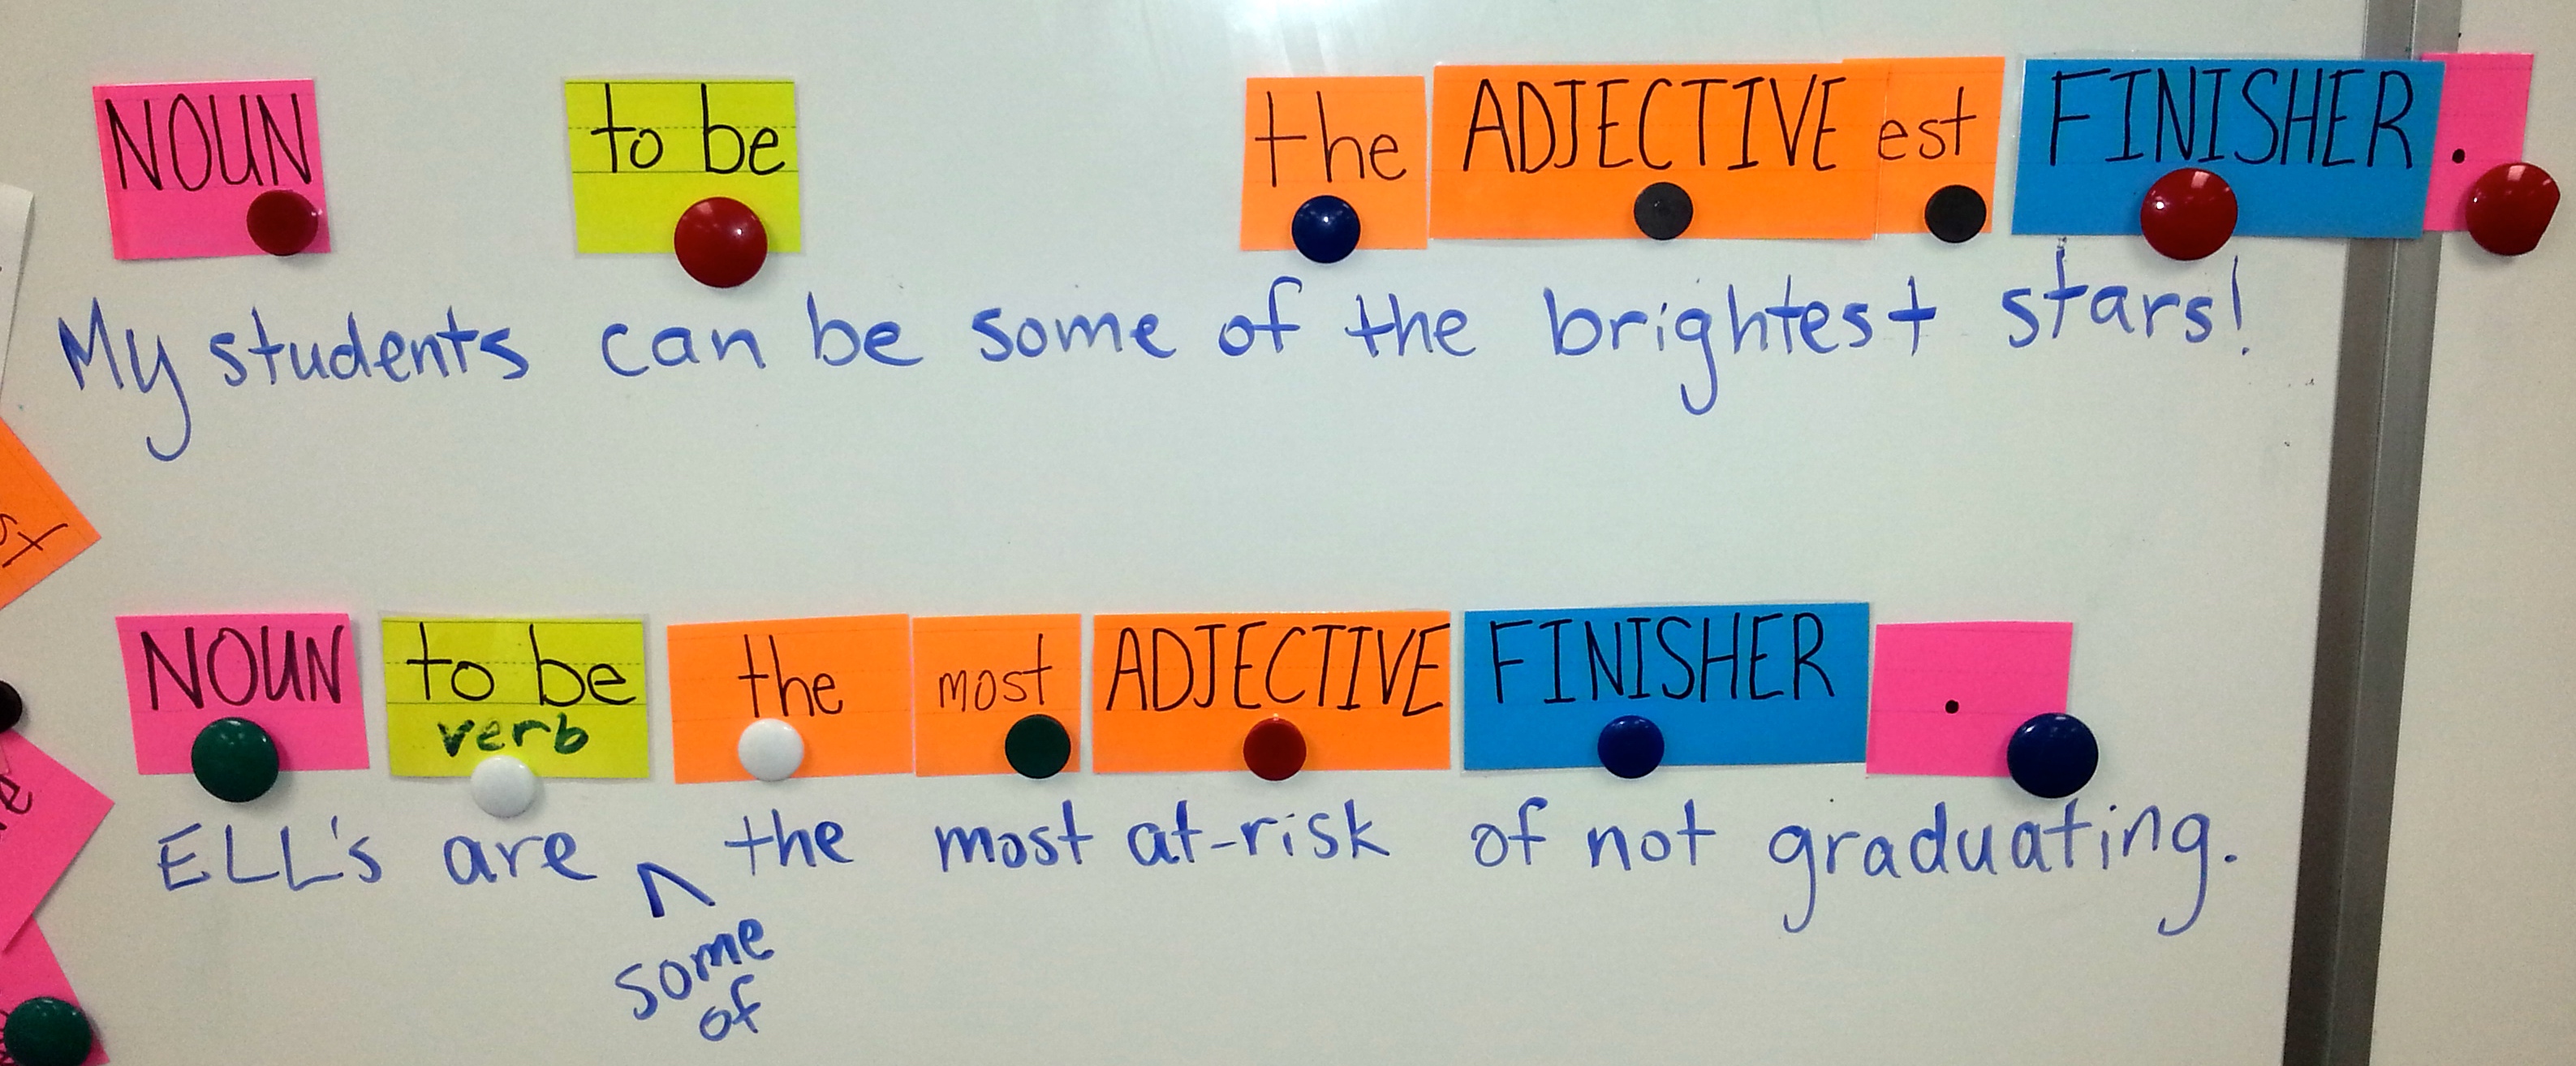 NOUN to be the ADJECTIVE est FINISHER .
My students can be some of the brightest stars!
NOUN to be the most ADJECTIVE FINISHER .
verb
ELL's are ^ the most at-risk of not graduating.
some
of
st